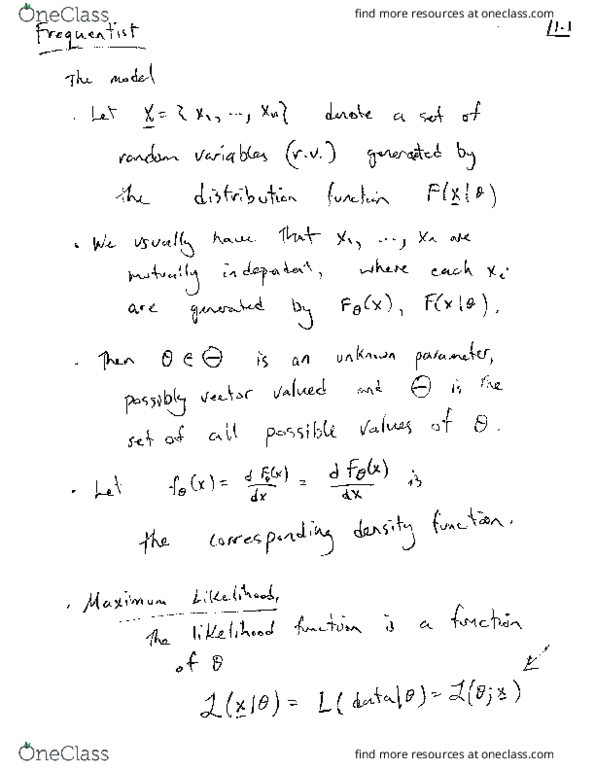 OneClass
find more resources at oneclass.com
Frequentist
L1.1
The model
. Let X = { x₁, ..., xₙ } denote a set of
random variables (r.v.) generated by
the distribution function F(x|θ)
• We usually have that x₁, ..., xₙ are
mutually independent, where each xᵢ
are generated by Fθ(x), F(x|θ).
. Then θ ∈ Θ is an unknown parameter,
possibly vector valued and Θ is the
set of all possible values of θ.
• Let fθ(x) = d Fθ(x)/dx = d Fθ(x)/dx is
the corresponding density function.
. Maximum Likelihood,
The likelihood function is a function
of θ
L(x|θ) = L( data|θ) = L(θ; x)
OneClass
find more resources at oneclass.com